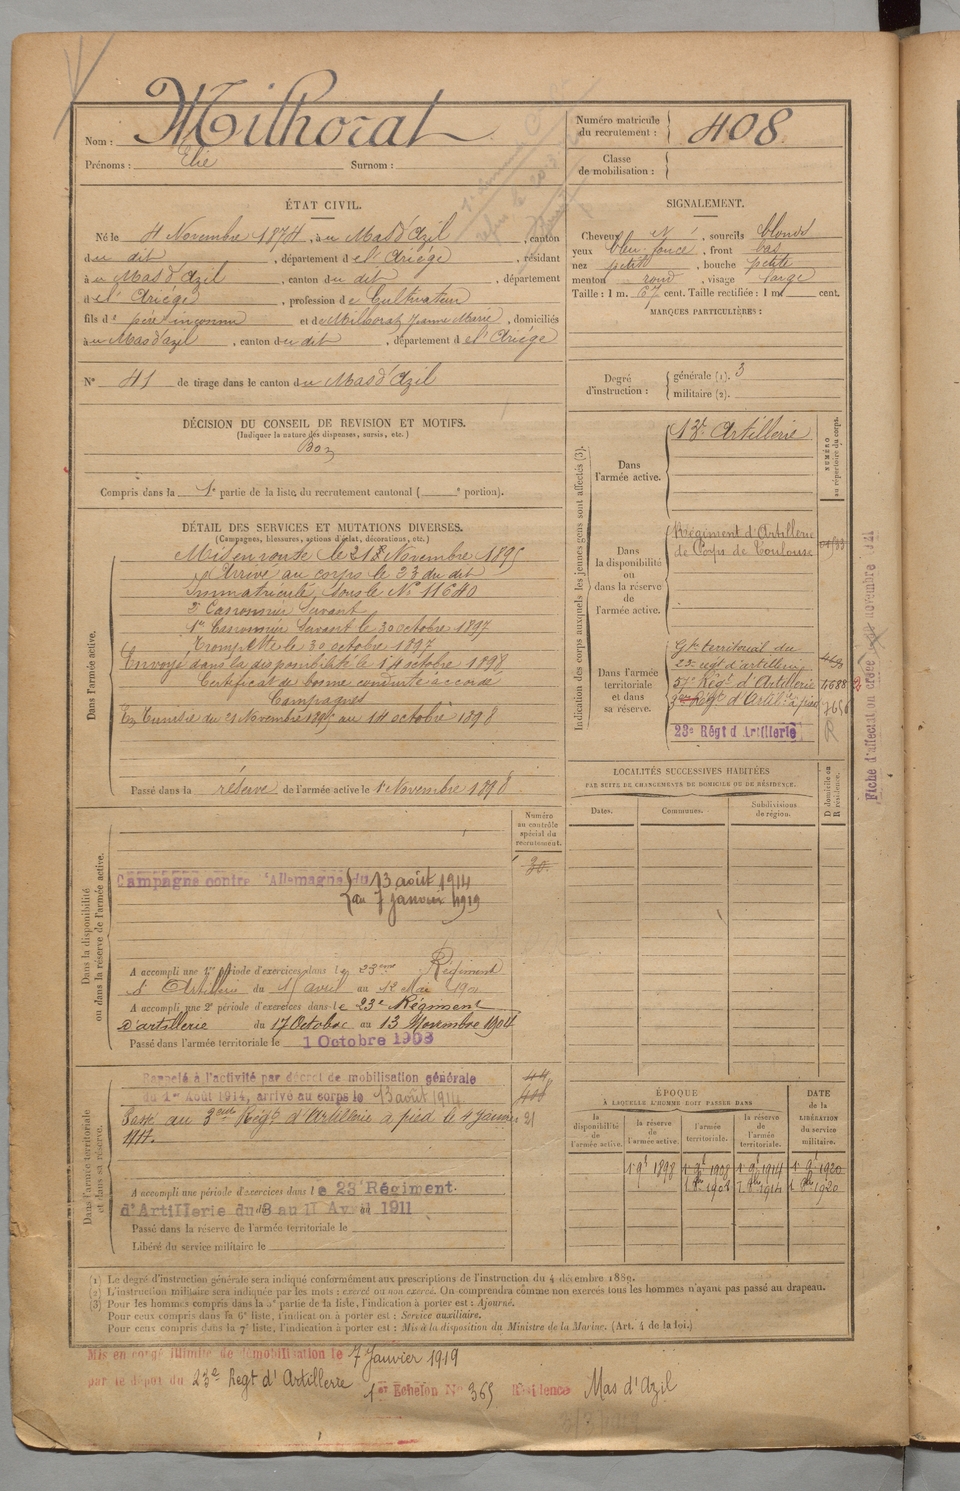 Nom : Milhorat
Prénoms : Elie Surnom :
Numéro matricule du recrutement : 408
Classe de mobilisation :
ÉTAT CIVIL.
Né le 4 Novembre 1874, à u Mas d'Azil, canton
d u dit, département d e l'Ariège, résidant
à u Mas d'Azil, canton d u dit, département
d e l'Ariège, profession d e Cultivateur
fils d e père inconnu et d e Milhorat Jeanne Marie, domiciliés
à u Mas d'azil, canton d u dit, département d e l'Ariège
N° 41 de tirage dans le canton d u Mas d'Azil
SIGNALEMENT.
Cheveux et, sourcils blonds
yeux bleu foncé, front bas
nez petit, bouche petite
menton rond, visage large
Taille : 1 m. 67 cent. Taille rectifiée : 1 m. cent.
MARQUES PARTICULIÈRES :
Degré d'instruction : générale (1). 3
militaire (2).
DÉCISION DU CONSEIL DE REVISION ET MOTIFS.
(Indiquer la nature des dispenses, sursis, etc.)
Bon
Compris dans la 1e partie de la liste du recrutement cantonal ( e portion).
DÉTAIL DES SERVICES ET MUTATIONS DIVERSES.
(Campagnes, blessures, actions d'éclat, décorations, etc.)
Dans l'armée active.
Mis en route le 21 Novembre 1895
Arrivé au corps le 23 du dit
Immatriculé sous le N° 11640
2e Canonnier Servant
1er Canonnier Servant le 30 octobre 1897
Trompette le 30 octobre 1897
Envoyé dans la disponibilité le 14 octobre 1898
Certificat de bonne conduite accordé
Campagnes
En Tunisie du 21 Novembre 1895 au 14 octobre 1898
Passé dans la réserve de l'armée active le 1er Novembre 1898
Indication des corps auxquels les jeunes gens sont affectés (3).
NUMÉRO au répertoire du corps.
Dans l'armée active.
13e Artillerie
Dans la disponibilité ou dans la réserve de l'armée active.
Régiment d'Artillerie
de Corps de Toulouse
Dans l'armée territoriale et dans sa réserve.
Gpe territorial du
23e regt d'artillerie
57e Régt d'Artillerie
3me Régt d'Artrie à pied
23e Régt d'Artillerie
Fiche d'affectation créée novembre 1921
LOCALITÉS SUCCESSIVES HABITÉES
PAR SUITE DE CHANGEMENTS DE DOMICILE OU DE RÉSIDENCE.
Dates. Communes. Subdivisions de région. D domicile ou R résidence.
Dans la disponibilité ou dans la réserve de l'armée active.
Numéro au contrôle spécial du recrutement.
30.
Campagne contre l'Allemagne du 13 août 1914
au 7 Janvier 1919
A accompli une 1re période d'exercices dans l e 23eme Régiment
d'Artillerie du 15 avril au 12 Mai
A accompli une 2e période d'exercices dans l e 23e Régiment
d'artillerie du 17 Octobre au 13 Novembre 1904
Passé dans l'armée territoriale le 1 Octobre 1908
Dans l'armée territoriale et dans sa réserve.
Rappelé à l'activité par décret de mobilisation générale
du 1er Août 1914, arrivé au corps le 13 août 1914
Passé au 3eme Régt d'Artillerie à pied le 4 Janvier
1917.
A accompli une période d'exercices dans l e 23e Régiment
d'Artillerie du 3 au 11 Avril 1911
Passé dans la réserve de l'armée territoriale le
Libéré du service militaire le
ÉPOQUE
À LAQUELLE L'HOMME DOIT PASSER DANS
DATE de la LIBÉRATION du service militaire.
la disponibilité de l'armée active. la réserve de l'armée active. l'armée territoriale. la réserve de l'armée territoriale.
1er 9bre 1898 1er 9bre 1908 1er 9bre 1914 1er 9bre 1920
1er 8bre 1908 1er 8bre 1914 1er 8bre 1920
(1) Le degré d'instruction générale sera indiqué conformément aux prescriptions de l'instruction du 4 décembre 1889.
(2) L'instruction militaire sera indiquée par les mots : exercé ou non exercé. On comprendra comme non exercés tous les hommes n'ayant pas passé au drapeau.
(3) Pour les hommes compris dans la 5e partie de la liste, l'indication à porter est : Ajourné.
Pour ceux compris dans la 6e liste, l'indication à porter est : Service auxiliaire.
Pour ceux compris dans la 7e liste, l'indication à porter est : Mis à la disposition du Ministre de la Marine. (Art. 4 de la loi.)
Mis en congé illimité de démobilisation le 7 Janvier 1919
par le dépôt du 23e Regt d'Artillerie 1er Echelon N° 365 Résidence Mas d'Azil